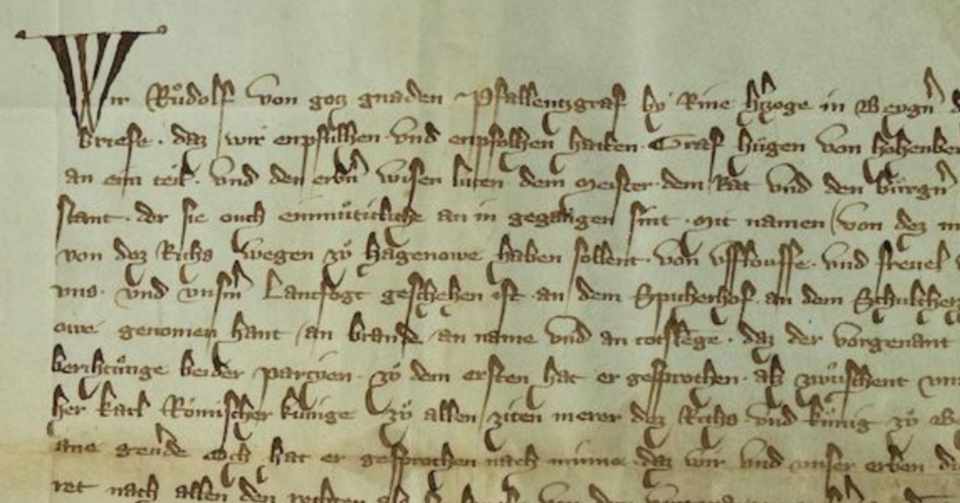 Wir Ruͦdolf von gotz gnaden Pfallentzgraf by Rine h'tzoge in Beygn
briefe · daz wir enpfulhen vnd enpfolhen haben · Graf Hugen von Hohenber
an eim teil · vnd den erbn wisen luten dem Meister · dem Rat vnd den burgn
stant · der sie ouch einmuͤticliche an in gegangen sint · mit namen von dez
von dez Richs wegen zuͦ Hagenowe haben sollent · von vfflouffe · vnd frevel
vns · vnd vnsm Lantfogt geschehen ist · an dem Spicherhof · an dem Schulthe
owe genomen hant an brande · an name vnd an totslege · daz der vorgenant
berihtunge beider partyen · zuͦ dem ersten hat er gesprochen · alz zwuschent
her Karl Romischer kunige zuͦ allen ziten merer dez Richs vnd kunig zuͦ
ane geuerde Och hat er gesprochen nach minne · daz wir vnd vnser erben
ret nach allen den rechten alz